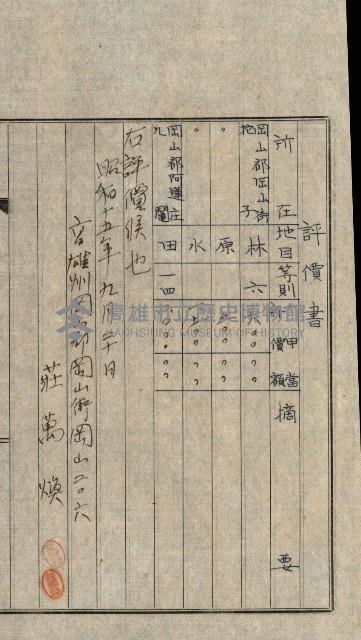 評價書
所在地目等則甲當價額摘要
岡山郡岡山街挖子林六
〃原
〃水
岡山郡阿蓮庄九鬮田一四
右評價候也
昭和十五年九月二十日
高雄州岡山郡岡山街岡山二〇六
莊萬煥
高雄市立歷史博物館
KAOHSIUNG MUSEUM OF HISTORY